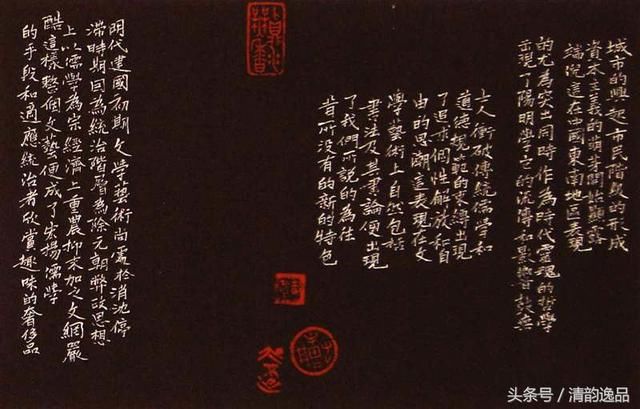 城市的興起市民階級的形成
資本主義的萌芽開始顯露
端倪這在中國東南地區表現
的尤為突出同時作為時代靈魂的哲學
出現了陽明學它的流傳和影響鼓舞
士人衝破傳統儒學和
道德規範的束縛出現
了追求個性解放和自
由的思潮這表現在文
學藝術上自然包括
書法及其書論便出現
了我們所說的為往
昔所沒有的新的特色
明代建國初期文學藝術尚處於消沈停
滯時期因為統治階層為除元朝弊政思想
上以儒學為宗經濟上重農抑末加之文網嚴
酷這樣整個文藝便成了宏揚儒學
的手段和適應統治者欣賞趣味的奢侈品
头条号／清韵逸品